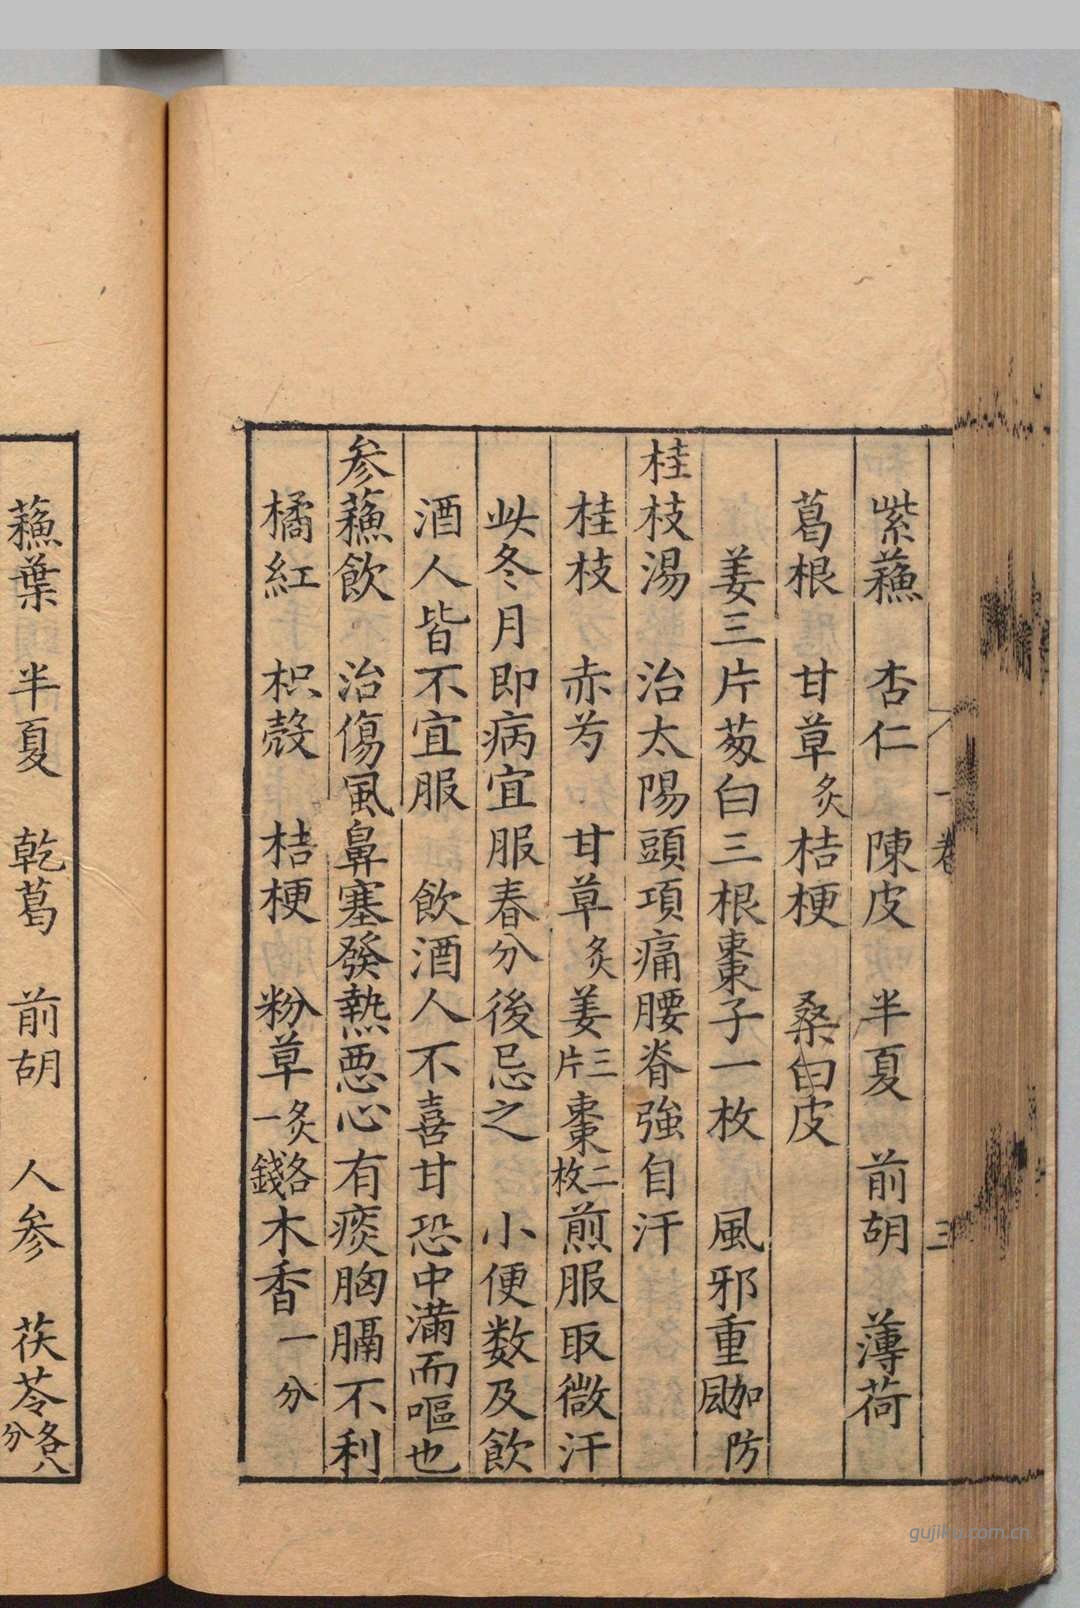 紫蘓　杏仁　陳皮　半夏　前胡　薄荷
葛根　甘草炙　桔梗　桑白皮
姜三片葱白三根棗子一枚　風邪重加防風
桂枝湯　治太陽頭項痛腰脊強自汗
桂枝　赤芍　甘草炙姜三片棗二枚煎服取微汗
此冬月即病宜服春分後忌之　小便数及飲
酒人皆不宜服　飲酒人不喜甘恐中滿而嘔也
参蘓飲　治傷風鼻塞發熱惡心有痰胸膈不利
橘紅　枳殼　桔梗　粉草炙各一錢木香一分
蘓葉　半夏　乾葛　前胡　人参　茯苓各八分
卷一
三
gujiku.com.cn